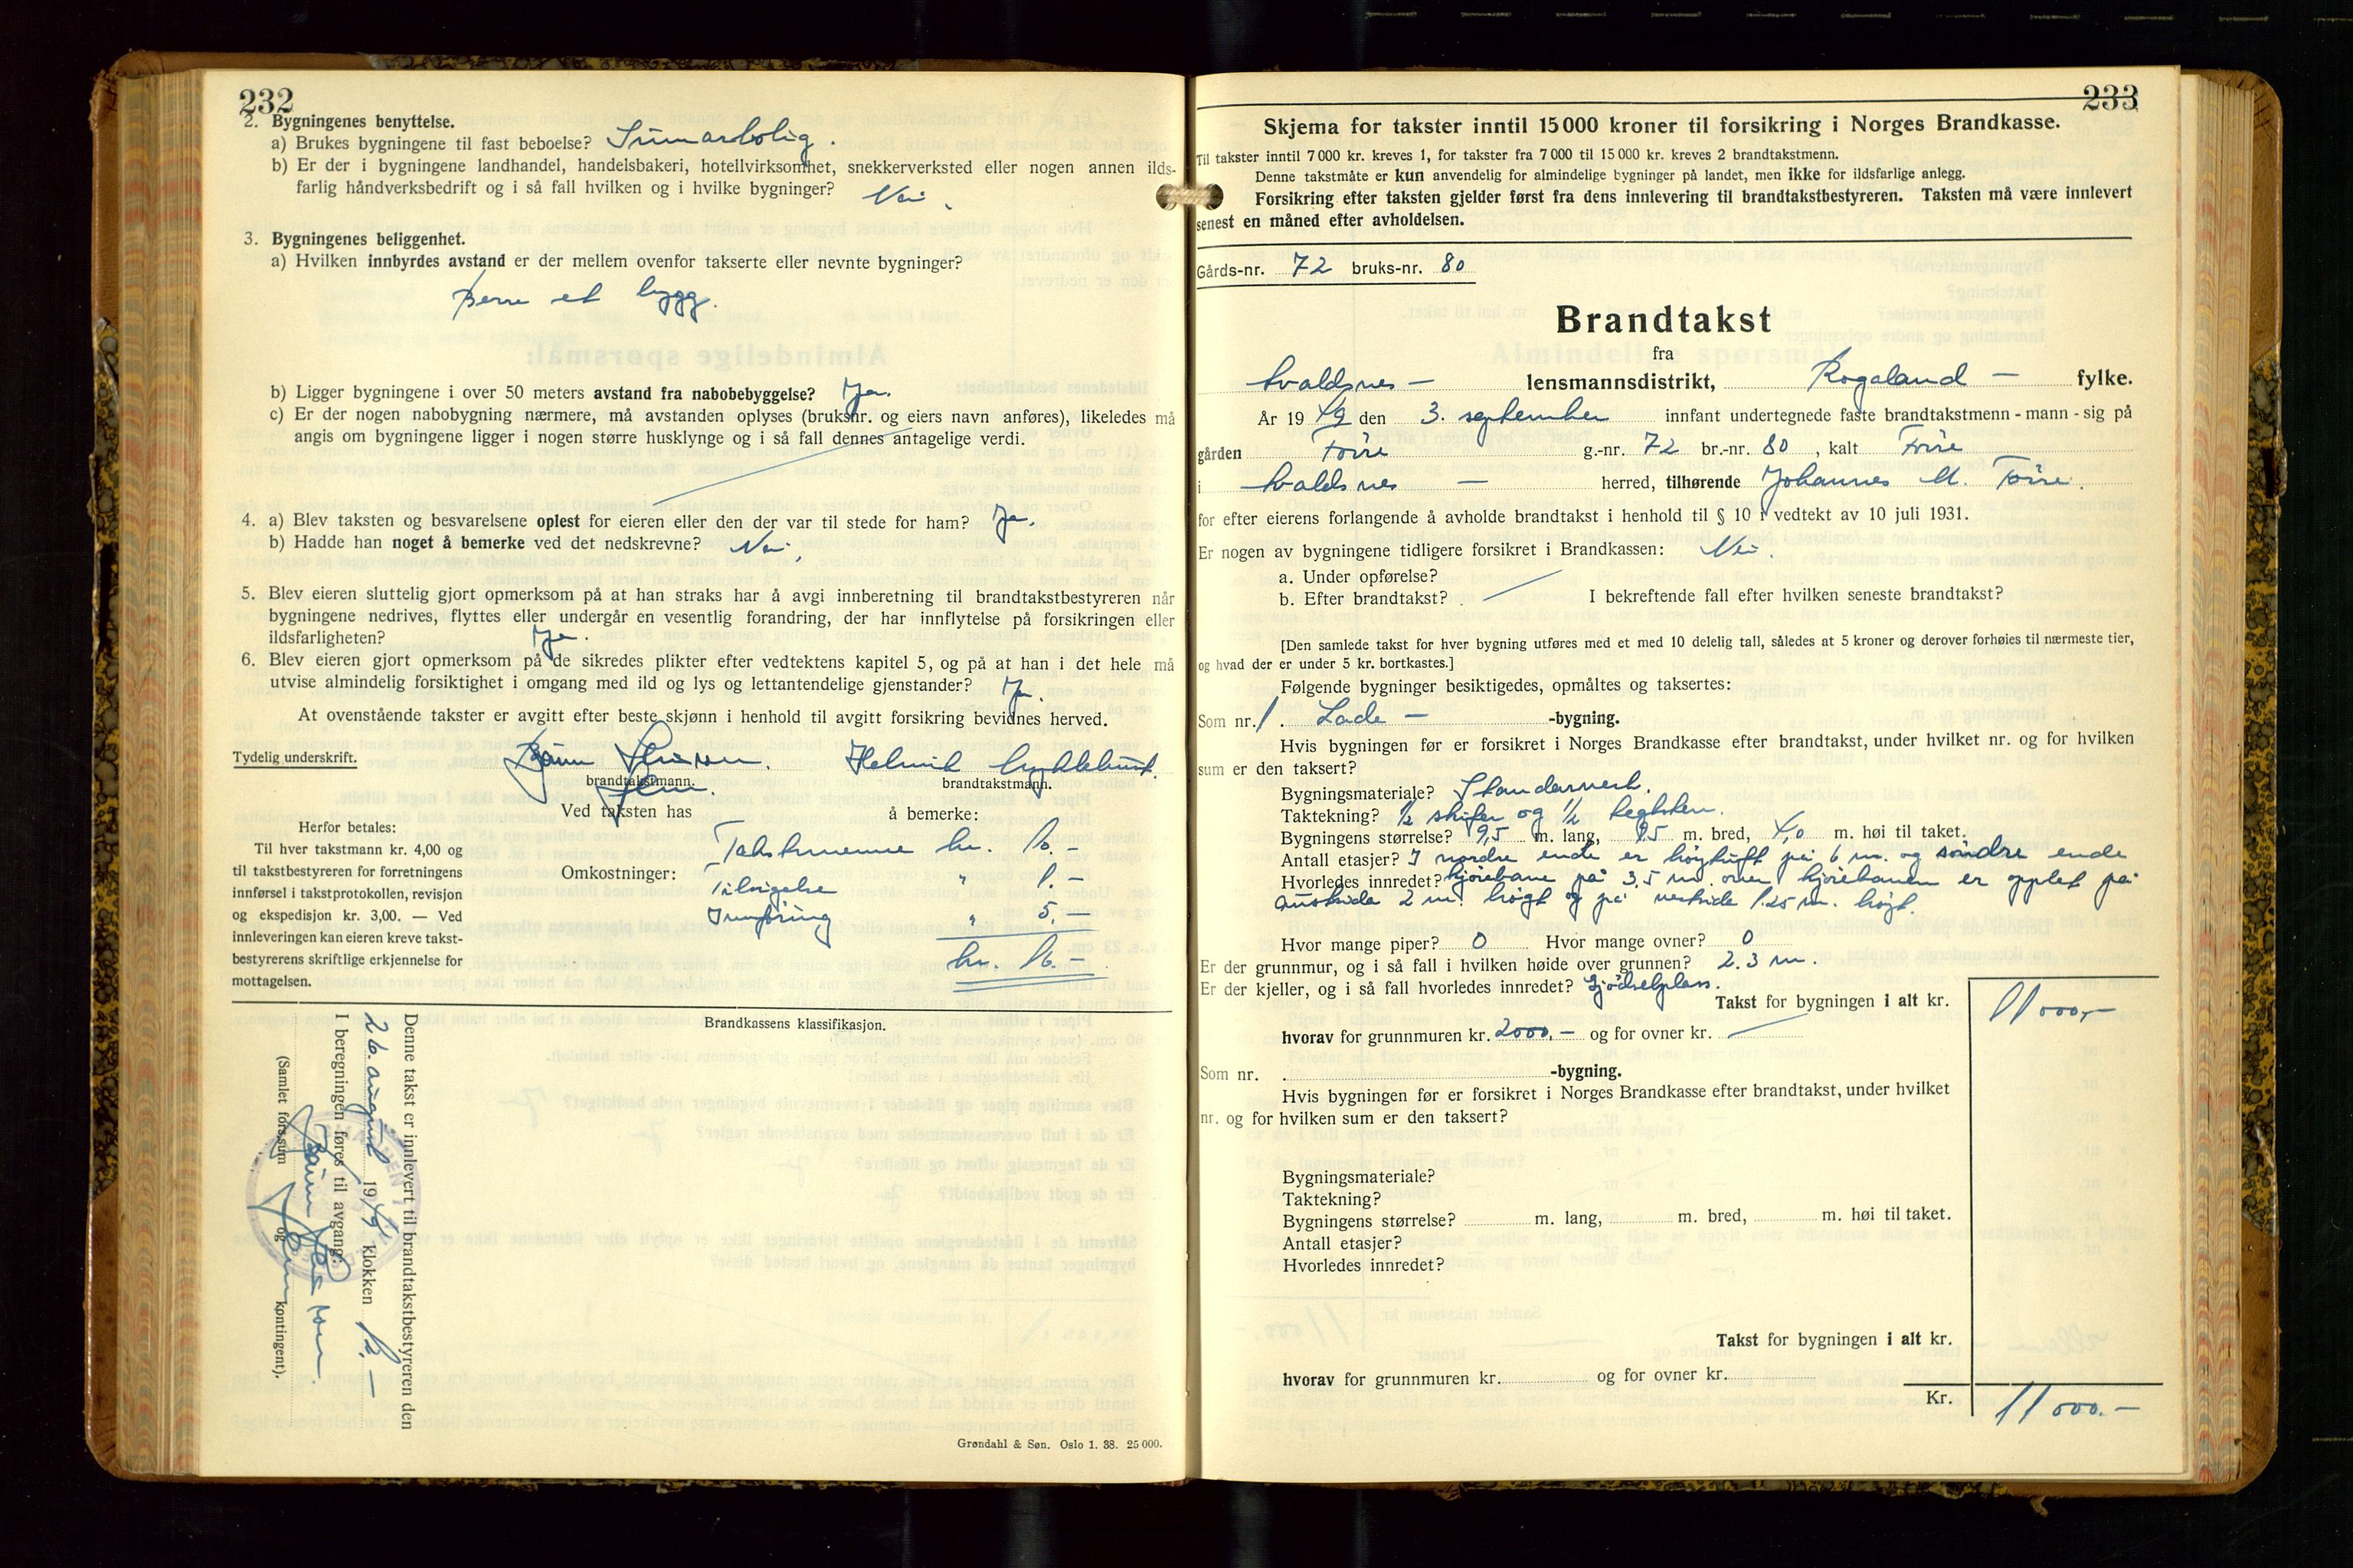 232
2. Bygningenes benyttelse.
a) Brukes bygningene til fast beboelse? Sumarbolig.
b) Er der i bygningene landhandel, handelsbakeri, hotellvirksomhet, snekkerverksted eller nogen annen ilds-
farlig håndverksbedrift og i så fall hvilken og i hvilke bygninger? Nei.
3. Bygningenes beliggenhet.
a) Hvilken innbyrdes avstand er der mellem ovenfor takserte eller nevnte bygninger?
Berre et bygg.
b) Ligger bygningene i over 50 meters avstand fra nabobebyggelse? Ja.
c) Er der nogen nabobygning nærmere, må avstanden oplyses (bruksnr. og eiers navn anføres), likeledes må
angis om bygningene ligger i nogen større husklynge og i så fall dennes antagelige verdi.
4. a) Blev taksten og besvarelsene oplest for eieren eller den der var til stede for ham? Ja.
b) Hadde han noget å bemerke ved det nedskrevne? Nei,
5. Blev eieren sluttelig gjort opmerksom på at han straks har å avgi innberetning til brandtakstbestyreren når
bygningene nedrives, flyttes eller undergår en vesentlig forandring, der har innflytelse på forsikringen eller
ildsfarligheten? Ja.
6. Blev eieren gjort opmerksom på de sikredes plikter efter vedtektens kapitel 5, og på at han i det hele må
utvise almindelig forsiktighet i omgang med ild og lys og lettantendelige gjenstander? Ja.
At ovenstående takster er avgitt efter beste skjønn i henhold til avgitt forsikring bevidnes herved.
Tydelig underskrift.
brandtakstmann. brandtakstmann.
Ved taksten has å bemerke:
Herfor betales:
Til hver takstmann kr. 4,00 og
til takstbestyreren for forretningens
innførsel i takstprotokollen, revisjon
og ekspedisjon kr. 3,00. — Ved
innleveringen kan eieren kreve takst-
bestyrerens skriftlige erkjennelse for
mottagelsen.
Omkostninger: Takstmennene kr. 10.-
" 1.-
Innføring " 5.-
kr. 16.-
Brandkassens klassifikasjon.
Denne takst er innlevert til brandtakstbestyreren den
26. august 1949 klokken 12.-
I beregningen føres til avgang:
(Samlet fors.sum og kontingent).
Grøndahl & Søn. Oslo 1. 38. 25 000.
233
Skjema for takster inntil 15 000 kroner til forsikring i Norges Brandkasse.
Til takster inntil 7 000 kr. kreves 1, for takster fra 7 000 til 15 000 kr. kreves 2 brandtakstmenn.
Denne takstmåte er kun anvendelig for almindelige bygninger på landet, men ikke for ildsfarlige anlegg.
Forsikring efter taksten gjelder først fra dens innlevering til brandtakstbestyreren. Taksten må være innlevert
senest en måned efter avholdelsen.
Gårds-nr. 72 bruks-nr. 80
Brandtakst
fra
Avaldsnes - lensmannsdistrikt, Rogaland - fylke.
År 1949 den 3. september innfant undertegnede faste brandtakstmenn - mann - sig på
gården Førre g.-nr. 72 br.-nr. 80, kalt Førre
i Avaldsnes - herred, tilhørende Johannes M. Førre.
for efter eierens forlangende å avholde brandtakst i henhold til § 10 i vedtekt av 10 juli 1931.
Er nogen av bygningene tidligere forsikret i Brandkassen: Nei.
a. Under opførelse?
b. Efter brandtakst? I bekreftende fall efter hvilken seneste brandtakst?
[Den samlede takst for hver bygning utføres med et med 10 delelig tall, således at 5 kroner og derover forhøies til nærmeste tier,
og hvad der er under 5 kr. bortkastes.]
Følgende bygninger besiktigedes, opmåltes og taksertes:
Som nr. 1. Lade - -bygning.
Hvis bygningen før er forsikret i Norges Brandkasse efter brandtakst, under hvilket nr. og for hvilken
sum er den taksert?
Bygningsmateriale? Standarverk.
Taktekning? 1/2 skifer og 1/2 teglstein.
Bygningens størrelse? 9,5 m. lang, 9.5 m. bred, 4,0 m. høi til taket.
Antall etasjer? I nordre ende er høgtuft på 6 m. og søndre ende
Hvorledes innredet? kjørebane på 3.5 m. over kjørebanen er opplet på
austside 2 m. høgt og på vestside 1.25 m. høgt.
Hvor mange piper? 0 Hvor mange ovner? 0
Er der grunnmur, og i så fall i hvilken høide over grunnen? 2.3 m.
Er der kjeller, og i så fall hvorledes innredet? Gjødselplass.
Takst for bygningen i alt kr. 11000,-
hvorav for grunnmuren kr. 2000.- og for ovner kr.
Som nr. -bygning.
Hvis bygningen før er forsikret i Norges Brandkasse efter brandtakst, under hvilket
nr. og for hvilken sum er den taksert?
Bygningsmateriale?
Taktekning?
Bygningens størrelse? m. lang, m. bred, m. høi til taket.
Antall etasjer?
Hvorledes innredet?
Takst for bygningen i alt kr.
hvorav for grunnmuren kr. og for ovner kr.
Kr. 11000.-